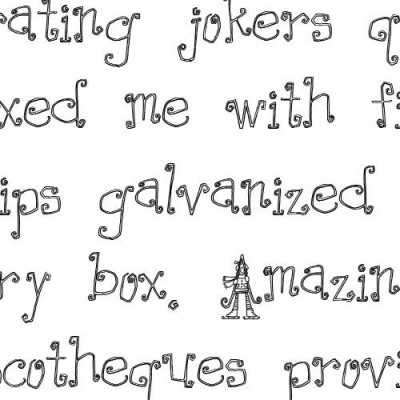 rating jokers q
xed me with fi
ips galvanized
ry box. Amazin
cotheques provi